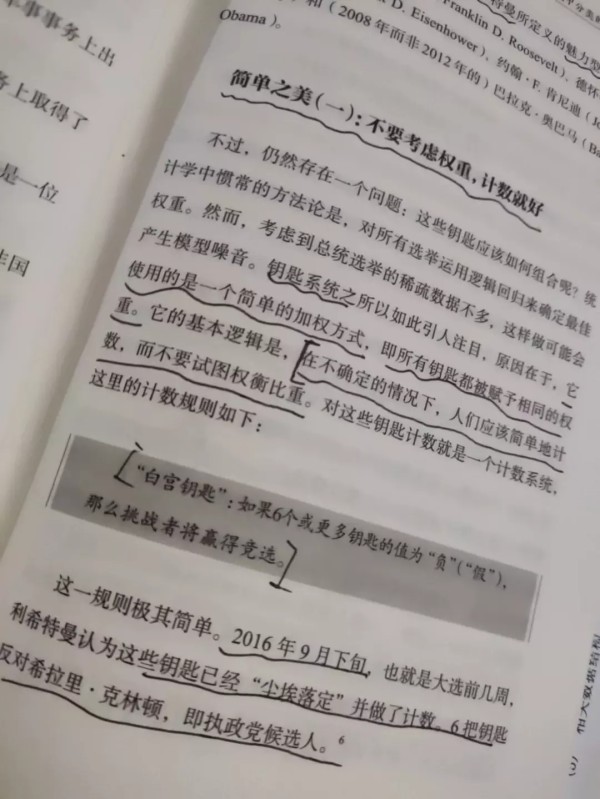 军事事务上出
务上取得了
是一位
非国
特曼所定义的魅力型
Franklin D. Roosevelt)、德怀
D. Eisenhower)、约翰·F. 肯尼迪(Jo
和(2008年而非2012年的)巴拉克·奥巴马(Ba
Obama)。
简单之美(一):不要考虑权重,计数就好
不过,仍然存在一个问题:这些钥匙应该如何组合呢?统
计学中惯常的方法论是,对所有选举运用逻辑回归来确定最佳
权重。然而,考虑到总统选举的稀疏数据不多,这样做可能会
产生模型噪音。钥匙系统之所以如此引人注目,原因在于,它
使用的是一个简单的加权方式,即所有钥匙都被赋予相同的权
重。它的基本逻辑是,在不确定的情况下,人们应该简单地计
数,而不要试图权衡比重。对这些钥匙计数就是一个计数系统,
这里的计数规则如下:
“白宫钥匙”:如果6个或更多钥匙的值为“负”(“假”),
那么挑战者将赢得竞选。
这一规则极其简单。2016年9月下旬,也就是大选前几周,
利希特曼认为这些钥匙已经“尘埃落定”并做了计数。6把钥匙
反对希拉里·克林顿,即执政党候选人。6